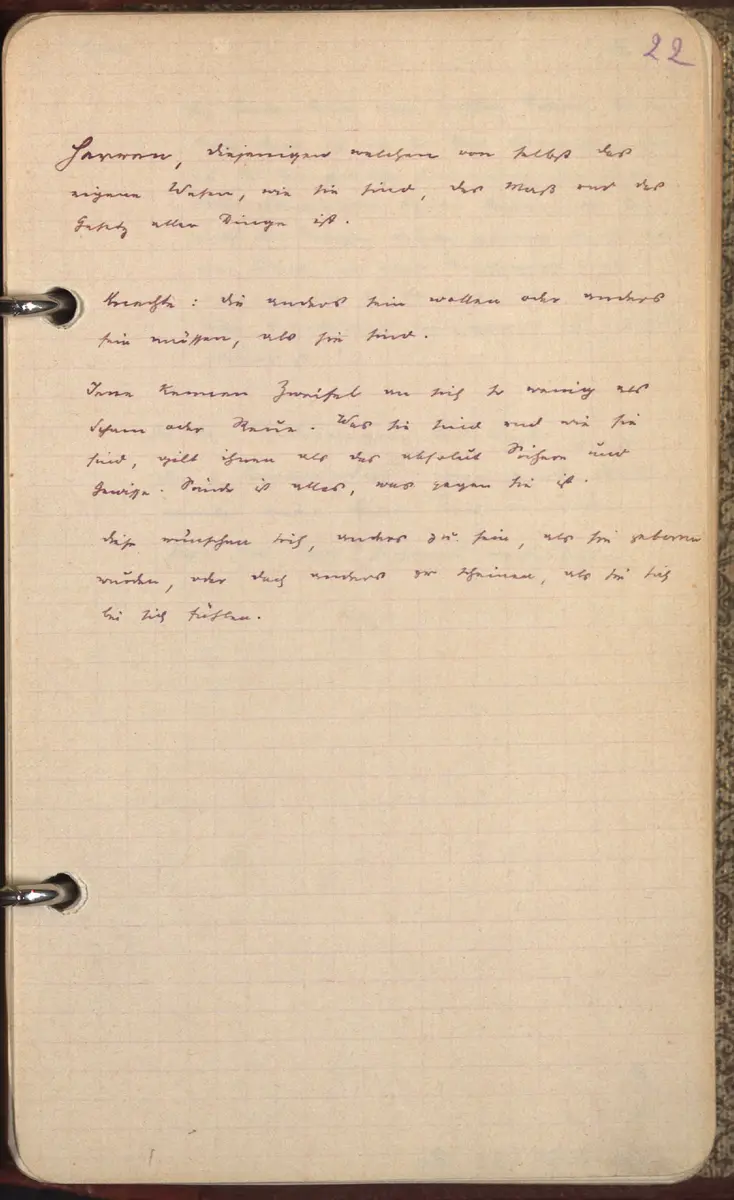 22
Herren, diejenigen welchen von selbst das
eigene Wesen, wie sie sind, das Maß und das
Gesetz aller Dinge ist.
Knechte: die anders sein wollen oder anders
sein müssen, als sie sind.
Jene kennen Zweifel an sich so wenig als
Scham oder Reue. Was sie sind und wie sie
sind, gilt ihnen als das absolut Sichere und
Gewisse. Sünde ist alles, was gegen sie ist.
Diese wünschen sich, anders zu sein, als sie geboren
wurden, oder doch anders zu scheinen, als sie sich
bei sich fühlen.